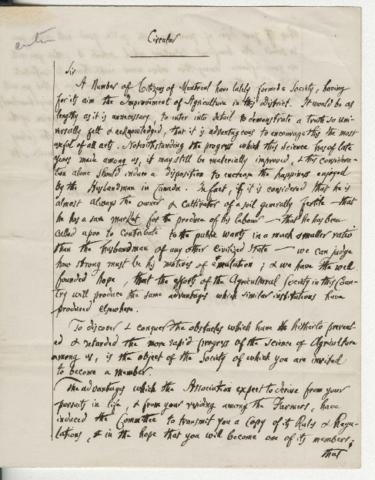 Circular
Sir
A Number of Citizens of Montreal have lately formed a Society, having
for its aim the Improvement of Agriculture in this District. It would be as
lengthy as it is unnecessary, to enter into detail to demonstrate a truth so uni-
versally felt & acknowledged, that it is advantageous to encourage this the most
useful of all arts. Notwithstanding the progress which this science has of late
years made among us, it may still be materially improved, & this considera-
tion alone should induce a disposition to encrease the happiness enjoyed
by the Husbandman in Canada. In fact, if it is considered that he is
almost always the owner & cultivator of a soil generally fertile — that
he has a sure market for the produce of his labour — that he has been
called upon to contribute to the public wants in a much smaller ratio
than the husbandman of any other Civilized State — we can judge
how strong must be his motives of emulation; & we have the well
founded hope, that the efforts of the Agricultural Society in this Coun-
try will produce the same advantages which similar institutions have
produced elsewhere.
To discover & conquer the obstacles which have hitherto prevent-
ed & retarded the more rapid progress of the Science of Agriculture
among us, is the object of the Society of which you are invited
to become a member.
The advantages which the Association expect to derive from your
pursuits in life, & from your residing among the Farmers, have
induced the Committee to transmit you a Copy of its Rules & Regu-
lations, & in the hope that you will become one of its members,
that